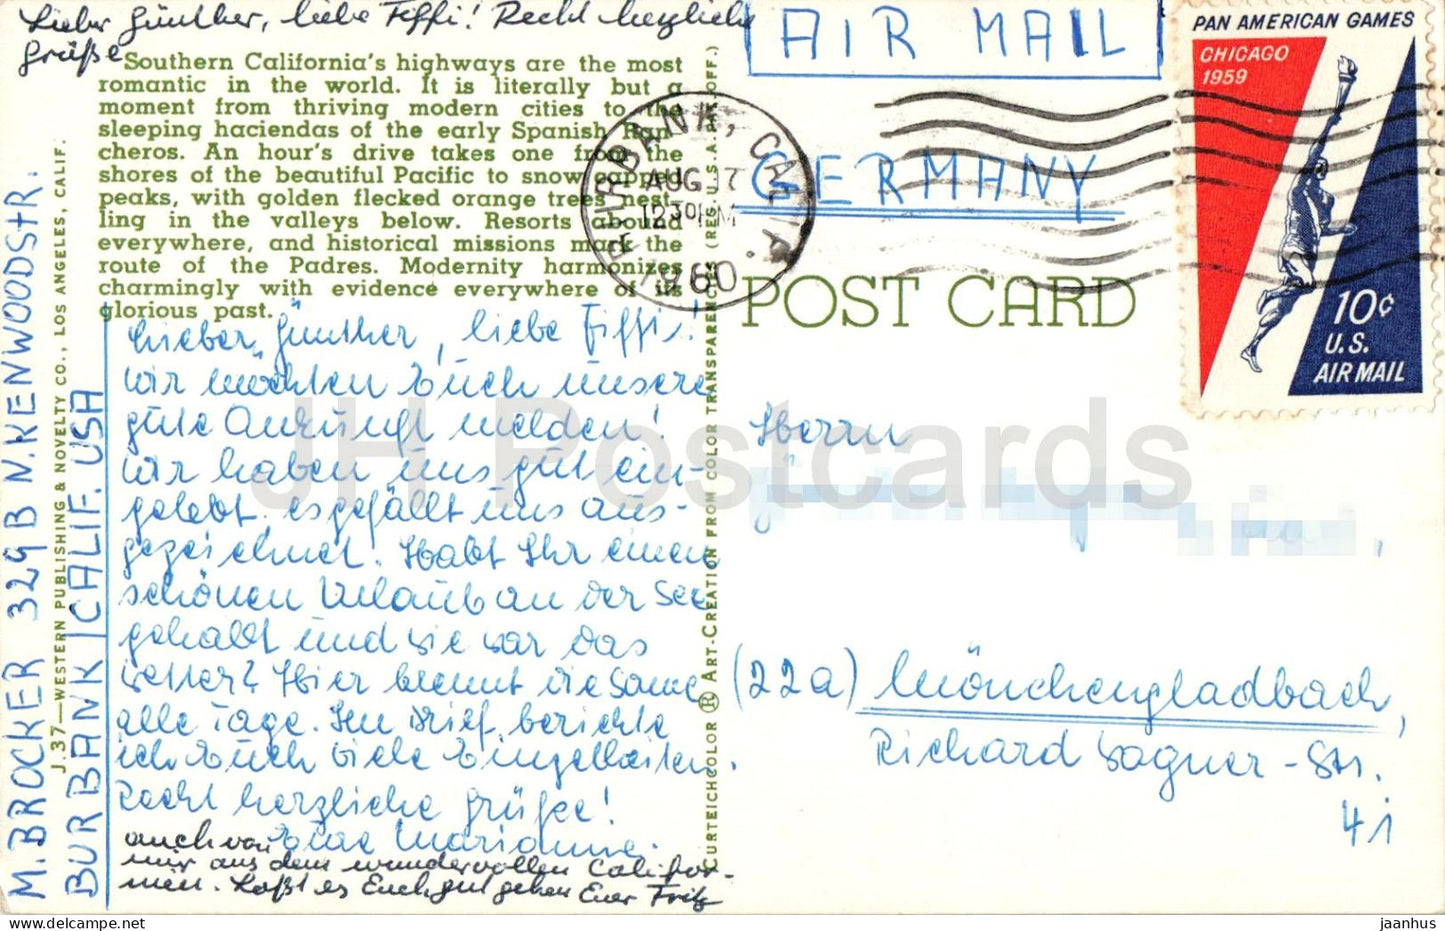 Lieber Günther, liebe Fiffi! Recht herzliche
Grüße
Southern California's highways are the most
romantic in the world. It is literally but a
moment from thriving modern cities to the
sleeping haciendas of the early Spanish Ran-
cheros. An hour's drive takes one from the
shores of the beautiful Pacific to snow-capped
peaks, with golden flecked orange trees nest-
ling in the valleys below. Resorts abound
everywhere, and historical missions mark the
route of the Padres. Modernity harmonizes
charmingly with evidence everywhere of its
glorious past.
Lieber Günther, liebe Fiffi!
Wir möchten Euch unsere
gute Ankunft melden!
Wir haben uns gut ein-
gelebt, es gefällt uns aus-
gezeichnet. Habt Ihr einen
schönen Urlaub an der See
gehabt und wie war das
Wetter? Hier brennt die Sonne
alle Tage. Im Brief berichte
ich Euch viele Einzelheiten.
Recht herzliche Grüße!
Eure Marianne.
auch von
mir aus dem wundervollen Califor-
nien. Laßt es Euch gut gehen Euer Fritz
M. BROCKER 329 B N. KENWOODSTR.
BURBANK / CALIF. USA
J. 37—WESTERN PUBLISHING & NOVELTY CO., LOS ANGELES, CALIF.
CURTEICHCOLOR ® ART-CREATION FROM COLOR TRANSPARENCIES (REG. U.S.A. PAT. OFF.)
AIR MAIL
PAN AMERICAN GAMES
CHICAGO
1959
10¢
U.S.
AIR MAIL
BURBANK, CALIF.
AUG 17
12 30 PM
1960
GERMANY
POST CARD
Herrn
(22a) Mönchengladbach,
Richard Wagner-Str.
41
JH Postcards
jaanhus